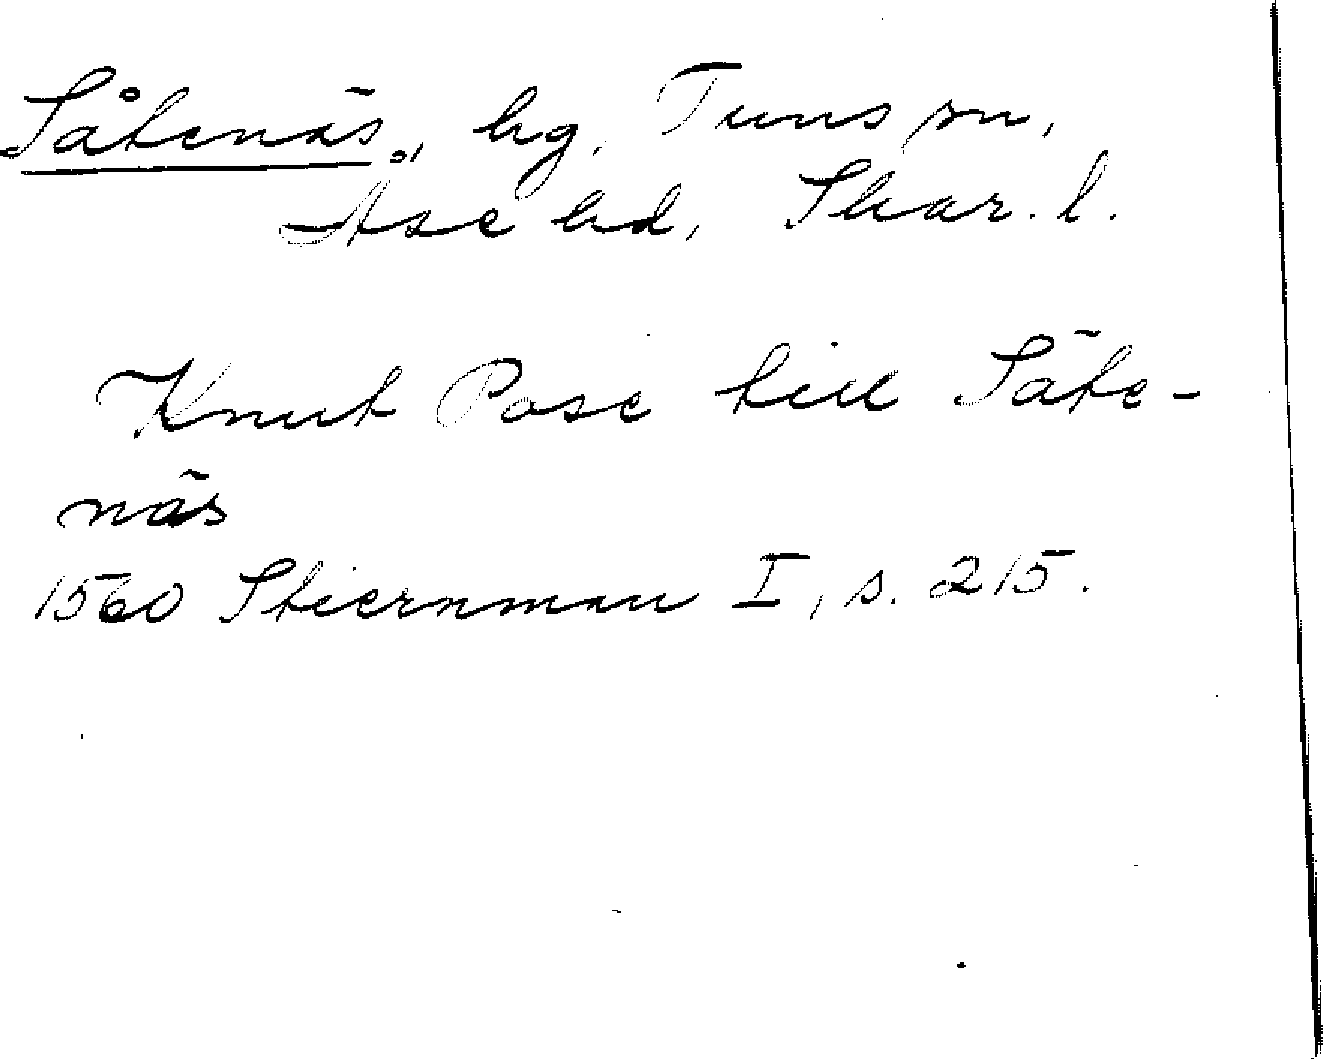 Såtenäs, hg, Tuns sn,
Åse hd, Skar. l.
Knut Pose till Säte-
näs
1560 Stiernman I, s. 215.